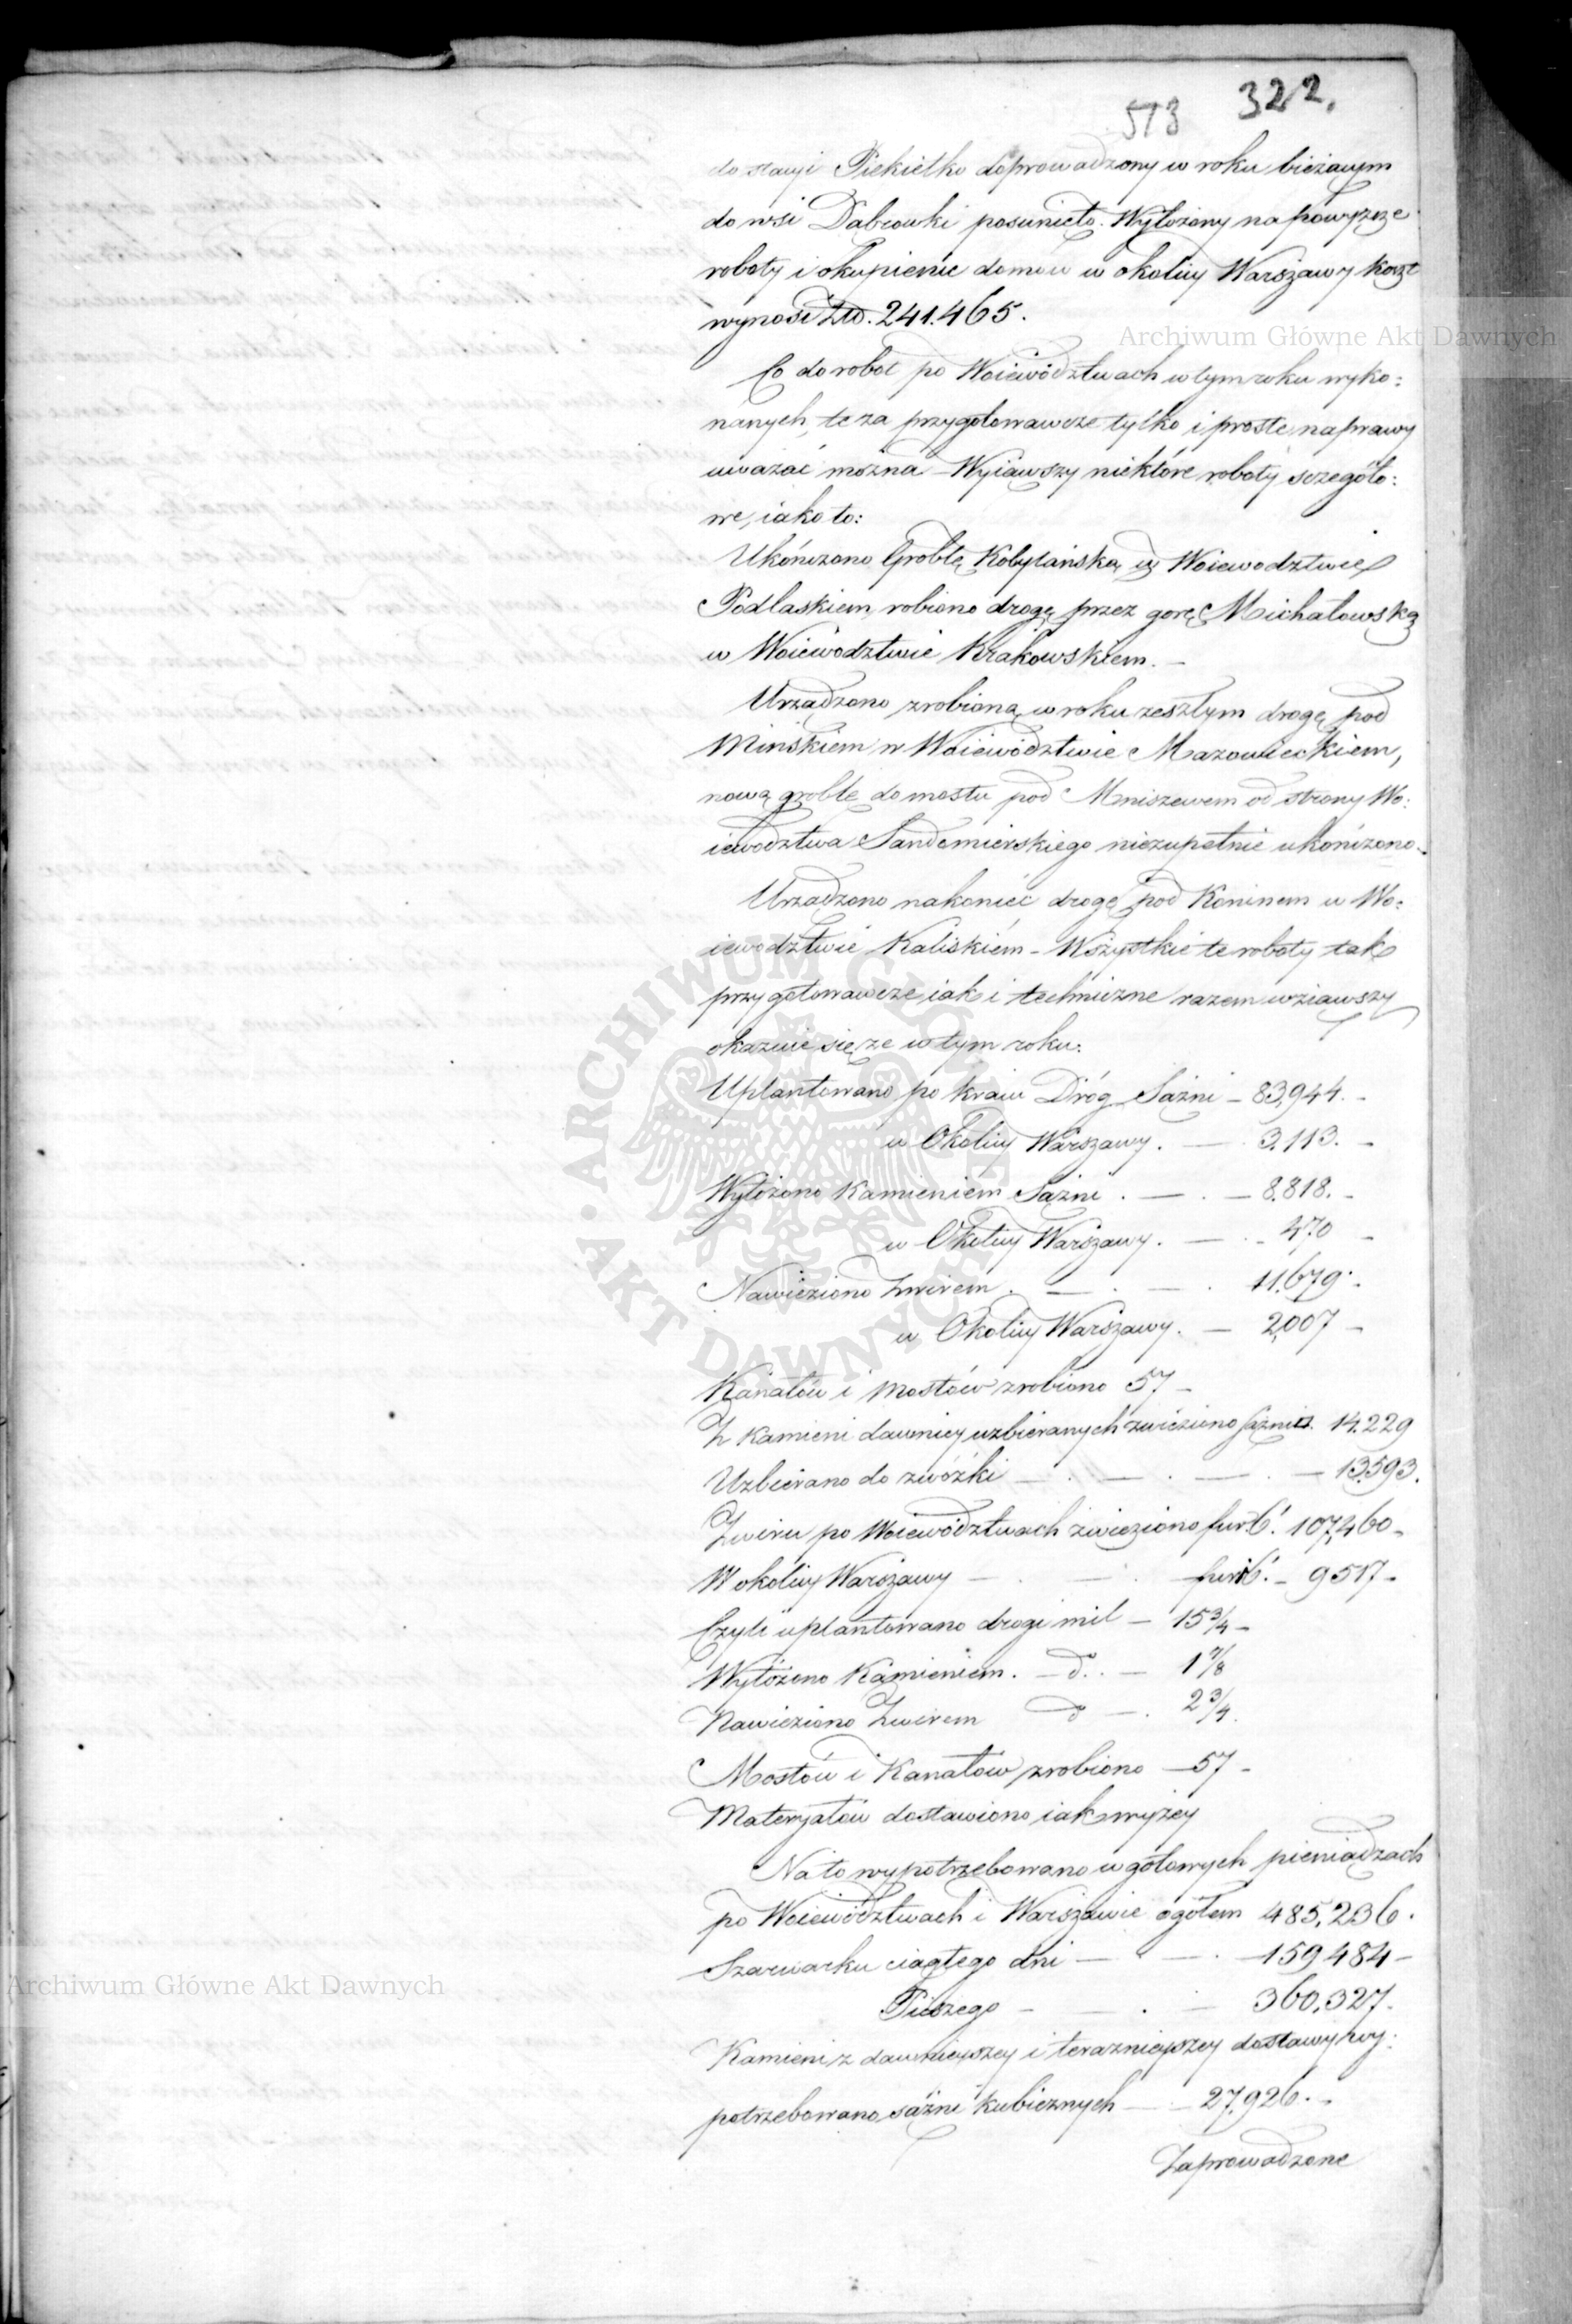 513 322.
do stacyi Piekiełko doprowadzony w roku bieżącym
do wsi Dąbrowki posunięto. Wyłożony na powyższe
roboty i okupienie domow w okolicy Warszawy koszt
wynosi Złƚ. 241.465.
Archiwum Główne Akt Dawnych
Co do robot po Woiewództwach w tym roku wyko:
nanych, te za przygotowawcze tylko i proste naprawy
uważać można – Wyiąwszy niektóre roboty szczegóło:
we, iako to:
Ukończono Groblę Kobylańską w Woiewodztwie
Podlaskiem, robiono drogę przez gorę Michałowską
w Woiewodztwie Krakowskiem. –
Urządzono zrobioną w roku zeszłym drogę pod
Mińskiem w Woiewództwie Mazowieckiem,
nową groblę do mostu pod Mniszewem od strony Wo:
iewodztwa Sandomierskiego niezupełnie ukończono.
Urządzono nakoniec drogę pod Koninem w Wo:
iewodztwie Kaliskiem – Wszystkie te roboty tak
przygotowawcze iak i techniczne razem wziąwszy
okazuie się ze w tym roku:
Uplantowano po kraiu Dróg Sążni – 83,944. –
w Okolicy Warszawy. — . 3,113. –
Wyłożono Kamieniem Sążni . — . — 8.818. –
w Okolicy Warszawy. — . – 470 –
Nawieziono Zwirem . — . — . 11.679. –
w Okolicy Warszawy. — 2,007 –
Kanałów i mostów zrobiono 57 –
Z kamieni dawniey uzbieranych zwieziono sążni 14.229
Uzbierano do zwózki — . — . — . — 13.593.
Zwiru po Woiewództwach zwieziono fur 6.' 107,460 –
W okolicy Warszawy — . — . fur 6.' – 9517 –
Czyli uplantowano drogi mil — 15 3/4 –
Wyłożono Kamieniem. – d.. — 1 7/8
Nawieziono Zwirem d — . 2 3/4.
Mostów i Kanałów zrobiono — 57 –
Materyałów dostawiono iak wyżey
Na to wypotrzebowano w gotowych pieniądzach
po Woiewództwach i Warszawie ogółem 485,236.
Szarwarku ciągłego dni — . — . 159 484 –
Archiwum Główne Akt Dawnych
Pieszego — — . — 360,327.
Kamieni z dawnieyszey i teraznieyszey dostawy wy:
potrzebowano sążni kubicznych — – 27,926. –
Zaprowadzone
ARCHIWUM GŁÓWNE AKT DAWNYCH